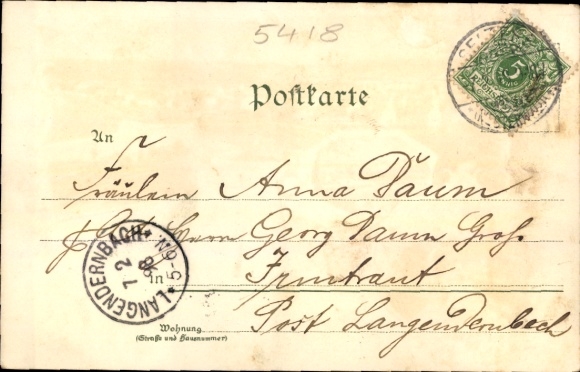 5418
Postkarte
5
An
Fräulein Anna Daum
Herrn Georg Daum Groß
in Irmtraut
Post Langendernbach
LANGENDERNBACH
1 2
98
5-6N.
Wohnung
(Straße und Hausnummer)